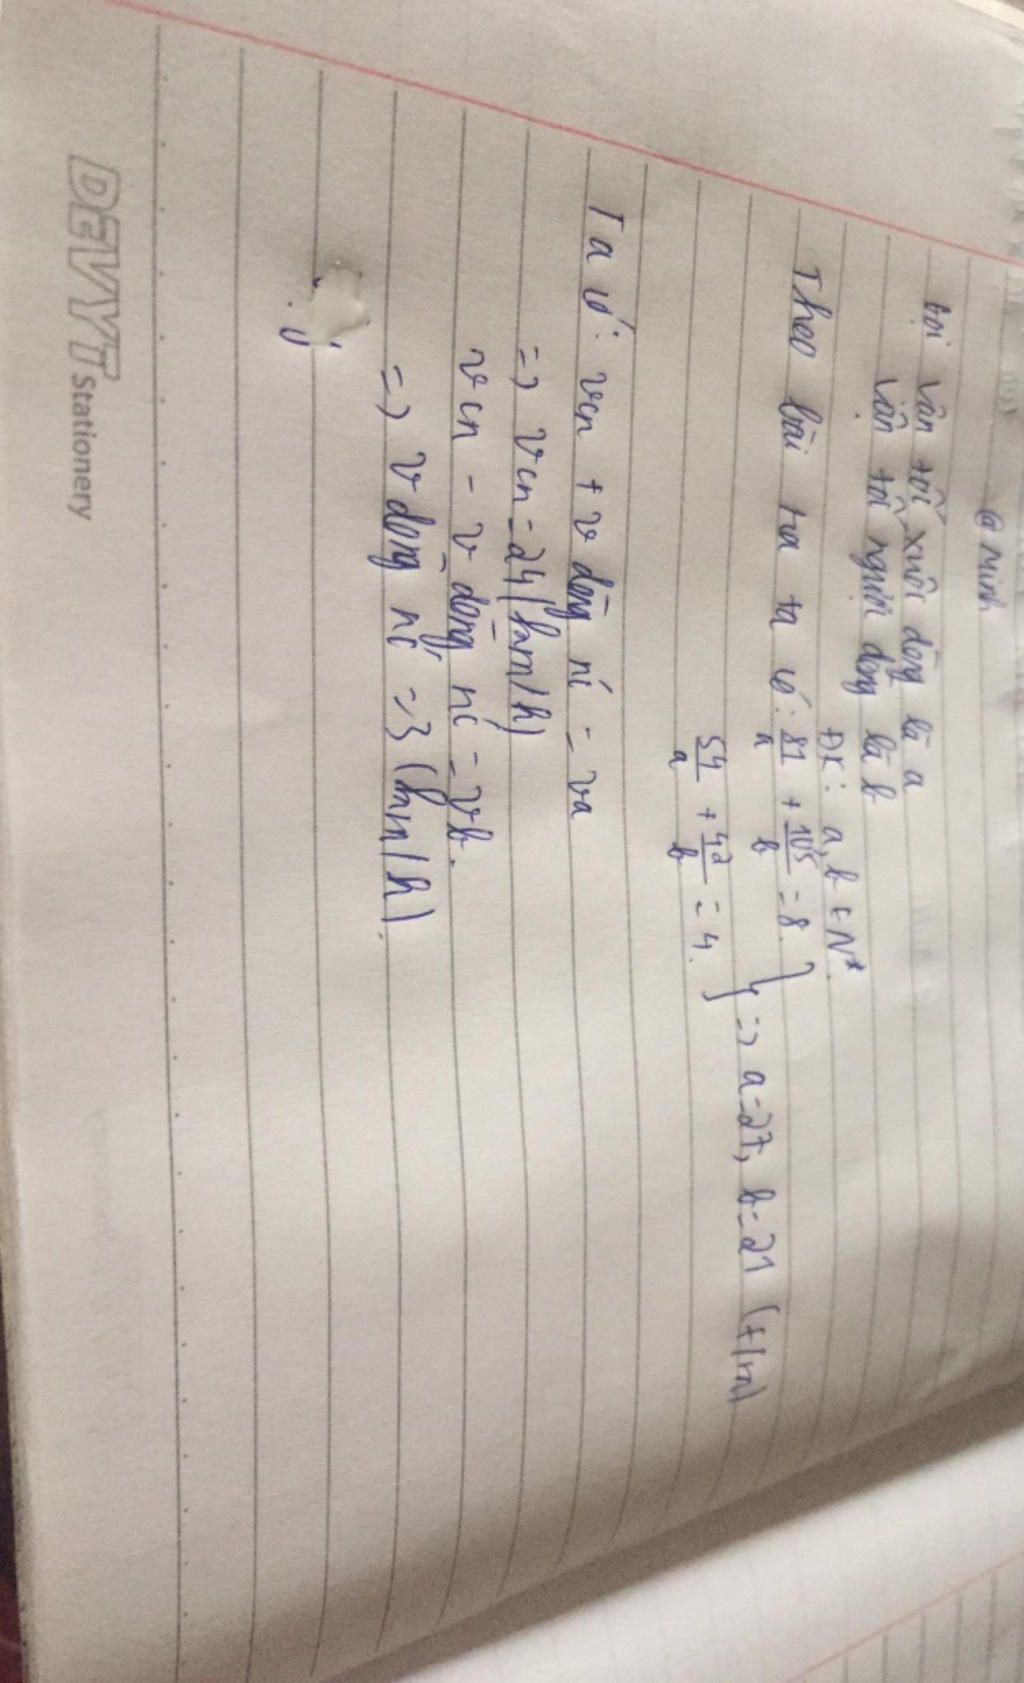 @ Minh
Gọi vận tốc xuôi dòng là a
vận tốc ngược dòng là b
ĐK: a, b ∈ N*
Theo bài ra ta có: 81/a + 105/b = 8.
54/a + 42/b = 4. } => a = 27, b = 21 (t/m)
Ta có: vcn + v dòng nc = va
=> vcn = 24 (km/h)
vcn - v dòng nc = vb.
=> v dòng nc = 3 (km/h).
DEVYT Stationery